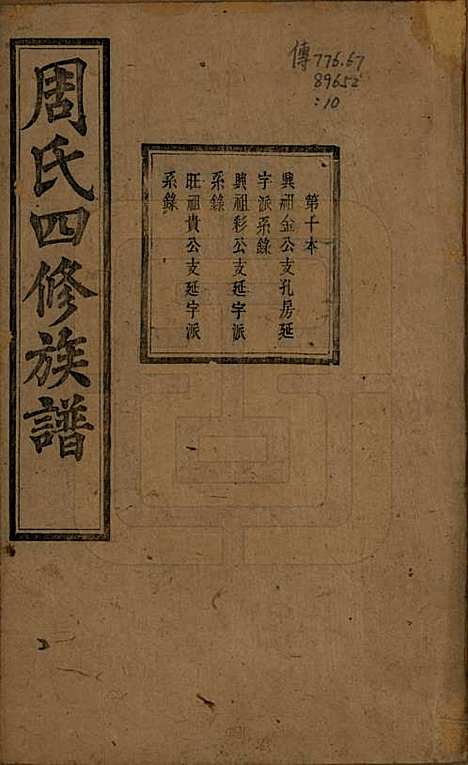 周氏四修族譜
傳776.67
89652
:10
第十本
興祖金公支孔房延
字派系錄
興祖彩公支延字派
系錄
旺祖貴公支延字派
系錄